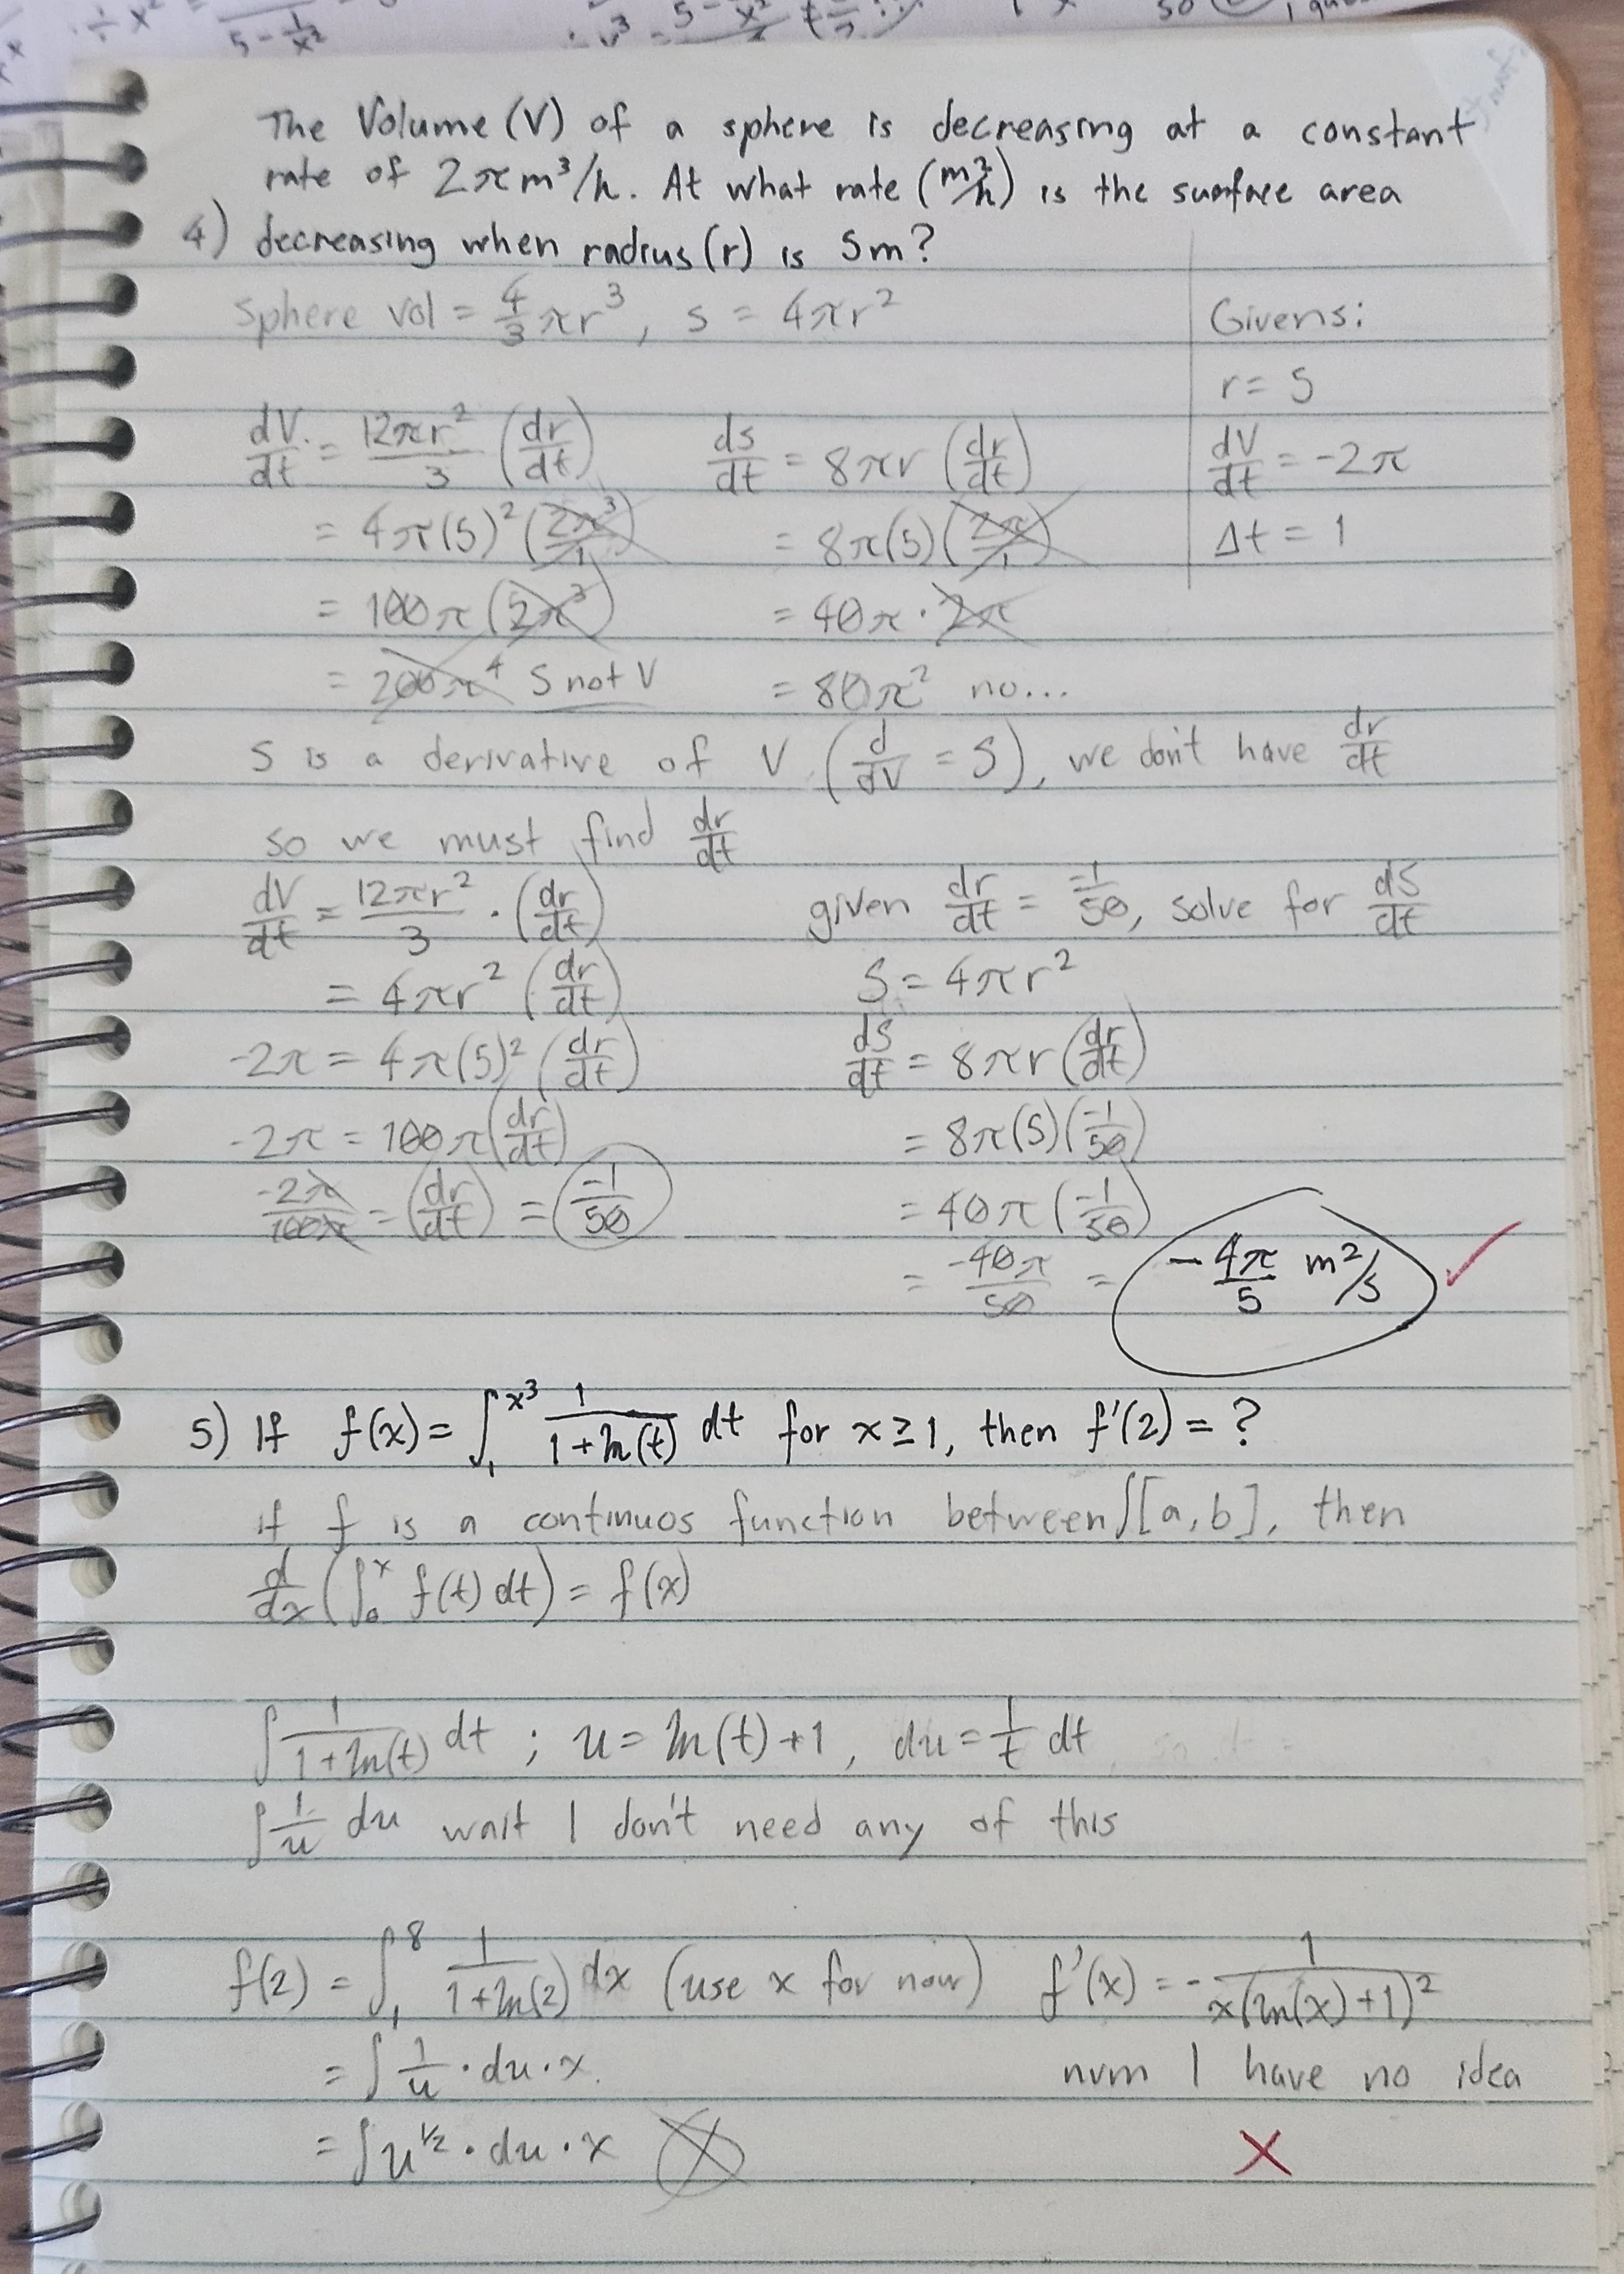 The Volume (V) of a sphere is decreasing at a constant
rate of 2πm³/h. At what rate (m²/h) is the surface area
4) decreasing when radius (r) is 5m?
Sphere vol = 4/3 πr³, s = 4πr²
Givens:
r = 5
dV/dt = -2π
Δt = 1
dV/dt = 12πr²/3 (dr/dt)
= 4π(5)² (2π³/1)
= 100π (2π³)
= 200π⁴ S not V
ds/dt = 8πr (dr/dt)
= 8π(5) (2π/1)
= 40π · 2π
= 80π² no...
S is a derivative of V (d/dV = S), we don't have dr/dt
so we must find dr/dt
dV/dt = 12πr²/3 · (dr/dt)
= 4πr² (dr/dt)
-2π = 4π(5)² (dr/dt)
-2π = 100π (dr/dt)
-2π/100π = (dr/dt) = -1/50
given dr/dt = -1/50, solve for dS/dt
S = 4πr²
dS/dt = 8πr (dr/dt)
= 8π(5) (-1/50)
= 40π (-1/50)
= -40π/50 = -4π/5 m²/s
5) If f(x) = ∫₁^x³ 1/(1+ln(t)) dt for x ≥ 1, then f'(2) = ?
if f is a continuos function between ∫[a,b], then
d/dx (∫₀^x f(t) dt) = f(x)
∫ 1/(1+ln(t)) dt ; u = ln(t)+1, du = 1/t dt
∫ 1/u du wait I don't need any of this
f(2) = ∫₁^8 1/(1+ln(2)) dx (use x for now)
= ∫ 1/u · du · x
= ∫ u^½ · du · x
f'(x) = - 1/(x(ln(x)+1)²)
nvm I have no idea